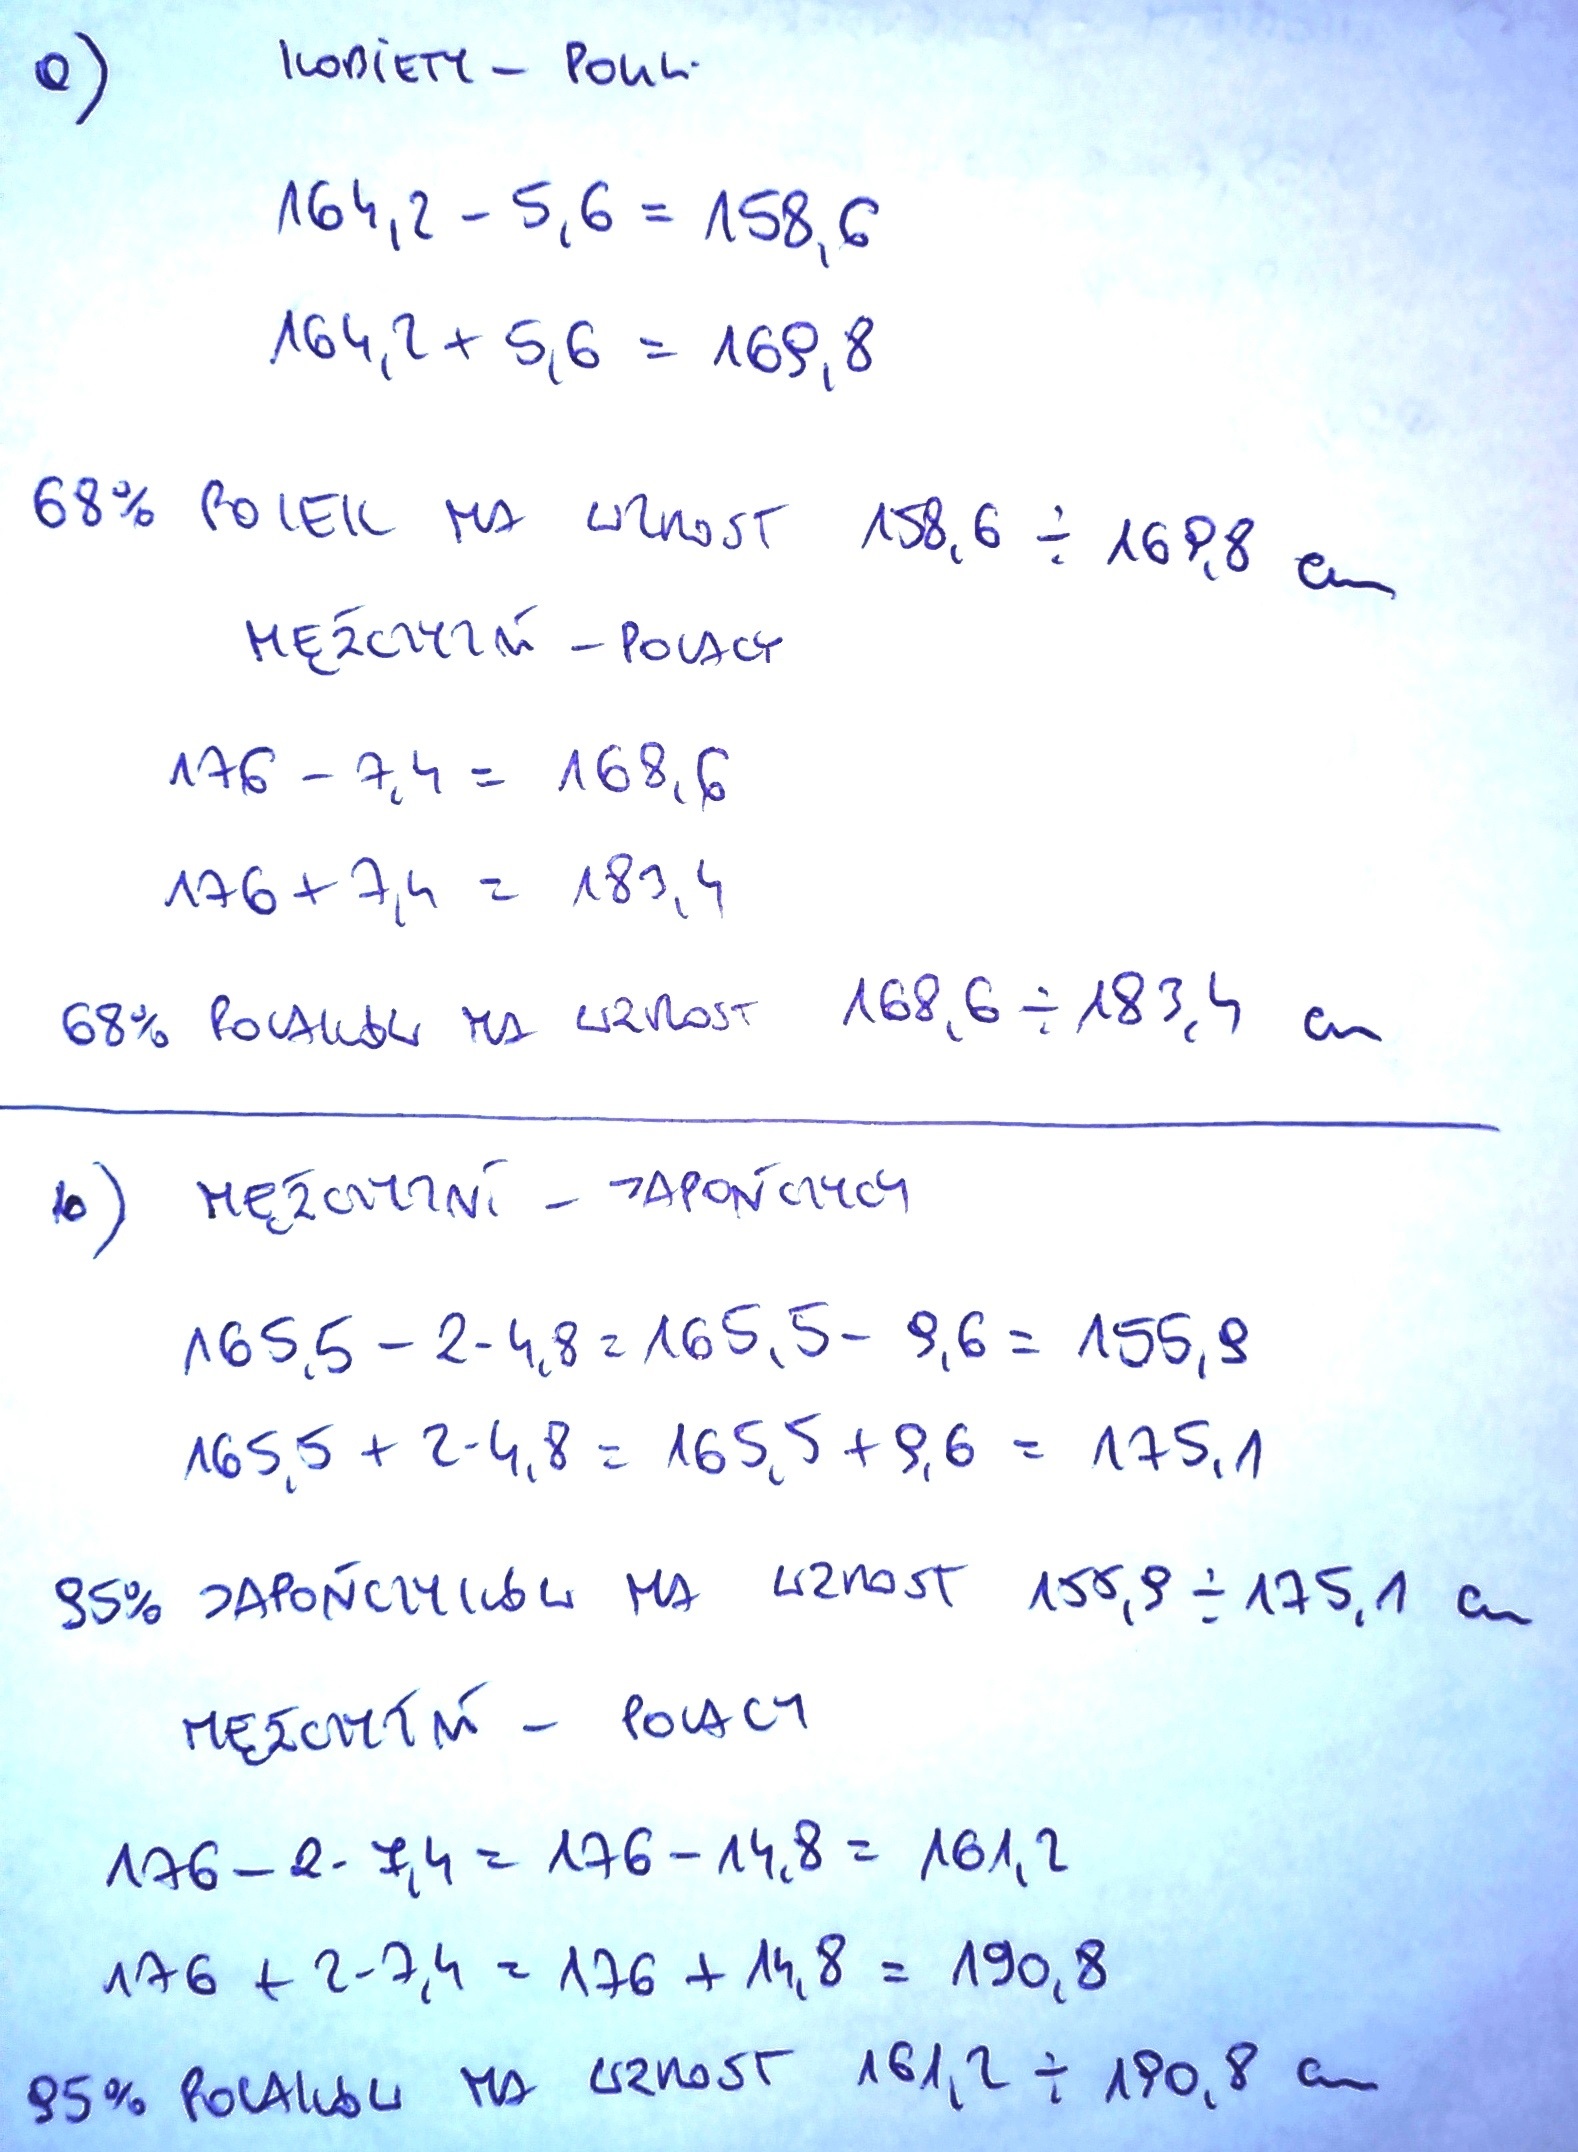 a) KOBIETY - POLKI
164,2 - 5,6 = 158,6
164,2 + 5,6 = 169,8
68% POLEK MA WZROST 158,6 ÷ 169,8 cm
MĘŻCZYŹNI - POLACY
176 - 7,4 = 168,6
176 + 7,4 = 183,4
68% POLAKÓW MA WZROST 168,6 ÷ 183,4 cm
b) MĘŻCZYŹNI - JAPOŃCZYCY
165,5 - 2·4,8 = 165,5 - 9,6 = 155,9
165,5 + 2·4,8 = 165,5 + 9,6 = 175,1
95% JAPOŃCZYKÓW MA WZROST 155,9 ÷ 175,1 cm
MĘŻCZYŹNI - POLACY
176 - 2·7,4 = 176 - 14,8 = 161,2
176 + 2·7,4 = 176 + 14,8 = 190,8
95% POLAKÓW MA WZROST 161,2 ÷ 190,8 cm